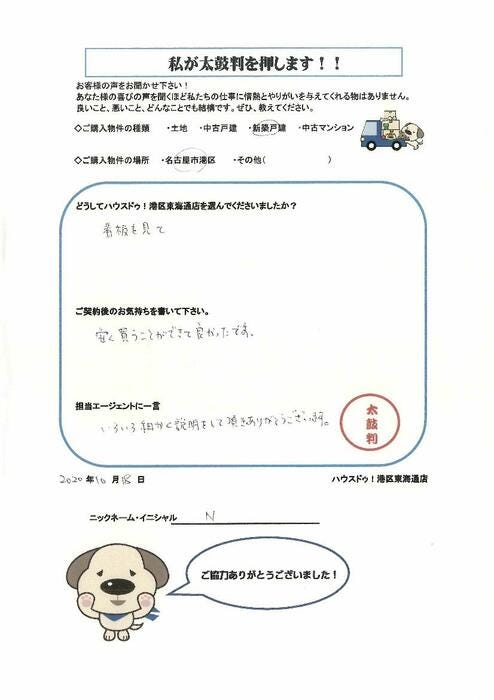 私が太鼓判を押します！！
お客様の声をお聞かせ下さい！
あなた様の喜びの声を聞くほど私たちの仕事に情熱とやりがいを与えてくれる物はありません。
良いこと、悪いこと、どんなことでも結構です。ぜひ、教えてください。
◇ご購入物件の種類　・土地　・中古戸建　・新築戸建　・中古マンション
◇ご購入物件の場所　・名古屋市港区　・その他(　　　　　　)
どうしてハウスドゥ！港区東海通店を選んでくださいましたか？
看板を見て
ご契約後のお気持ちを書いて下さい。
安く買うことができて良かったです。
担当エージェントに一言
いろいろ細かく説明をして頂きありがとうございます。
太鼓判
2020 年 10 月 18 日　　ハウスドゥ！港区東海通店
ニックネーム・イニシャル　N
ご協力ありがとうございました！